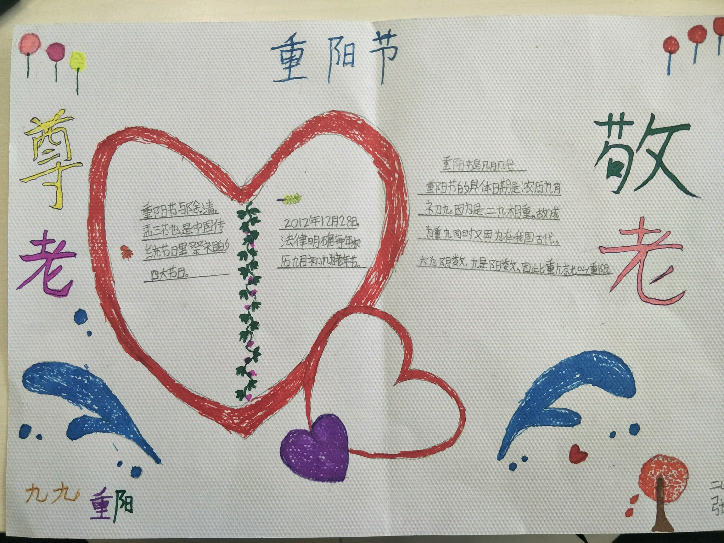 重阳节
尊老
敬老
重阳节与除、清、
盂三节也是中国传
统节日里祭祖的
四大节日。
2012年12月28日,
法律明确每年农
历九月初九为老年节
重阳节是几月几号
重阳节的具体日期是农历九月
初九,因为是二九相重,故成
为重九同时又因为在我国古代,
六为阴数,九是阳数,因此
九九重阳